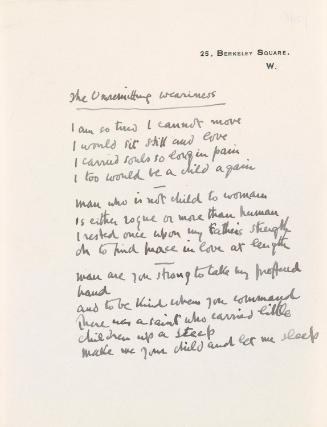 25, BERKELEY SQUARE.
W.
The Unremitting weariness
I am so tired I cannot move
I would sit still and love
I carried souls so long in pain
I too would be a child again
man who is not child to woman
Is either rogue or more than human
I rested once upon my father's strength
Oh to find peace in love at length
man are you strong to take my proffered
hand
and to be kind when you command
There was a saint who carried little
children up a steep
make me your child and let me sleep